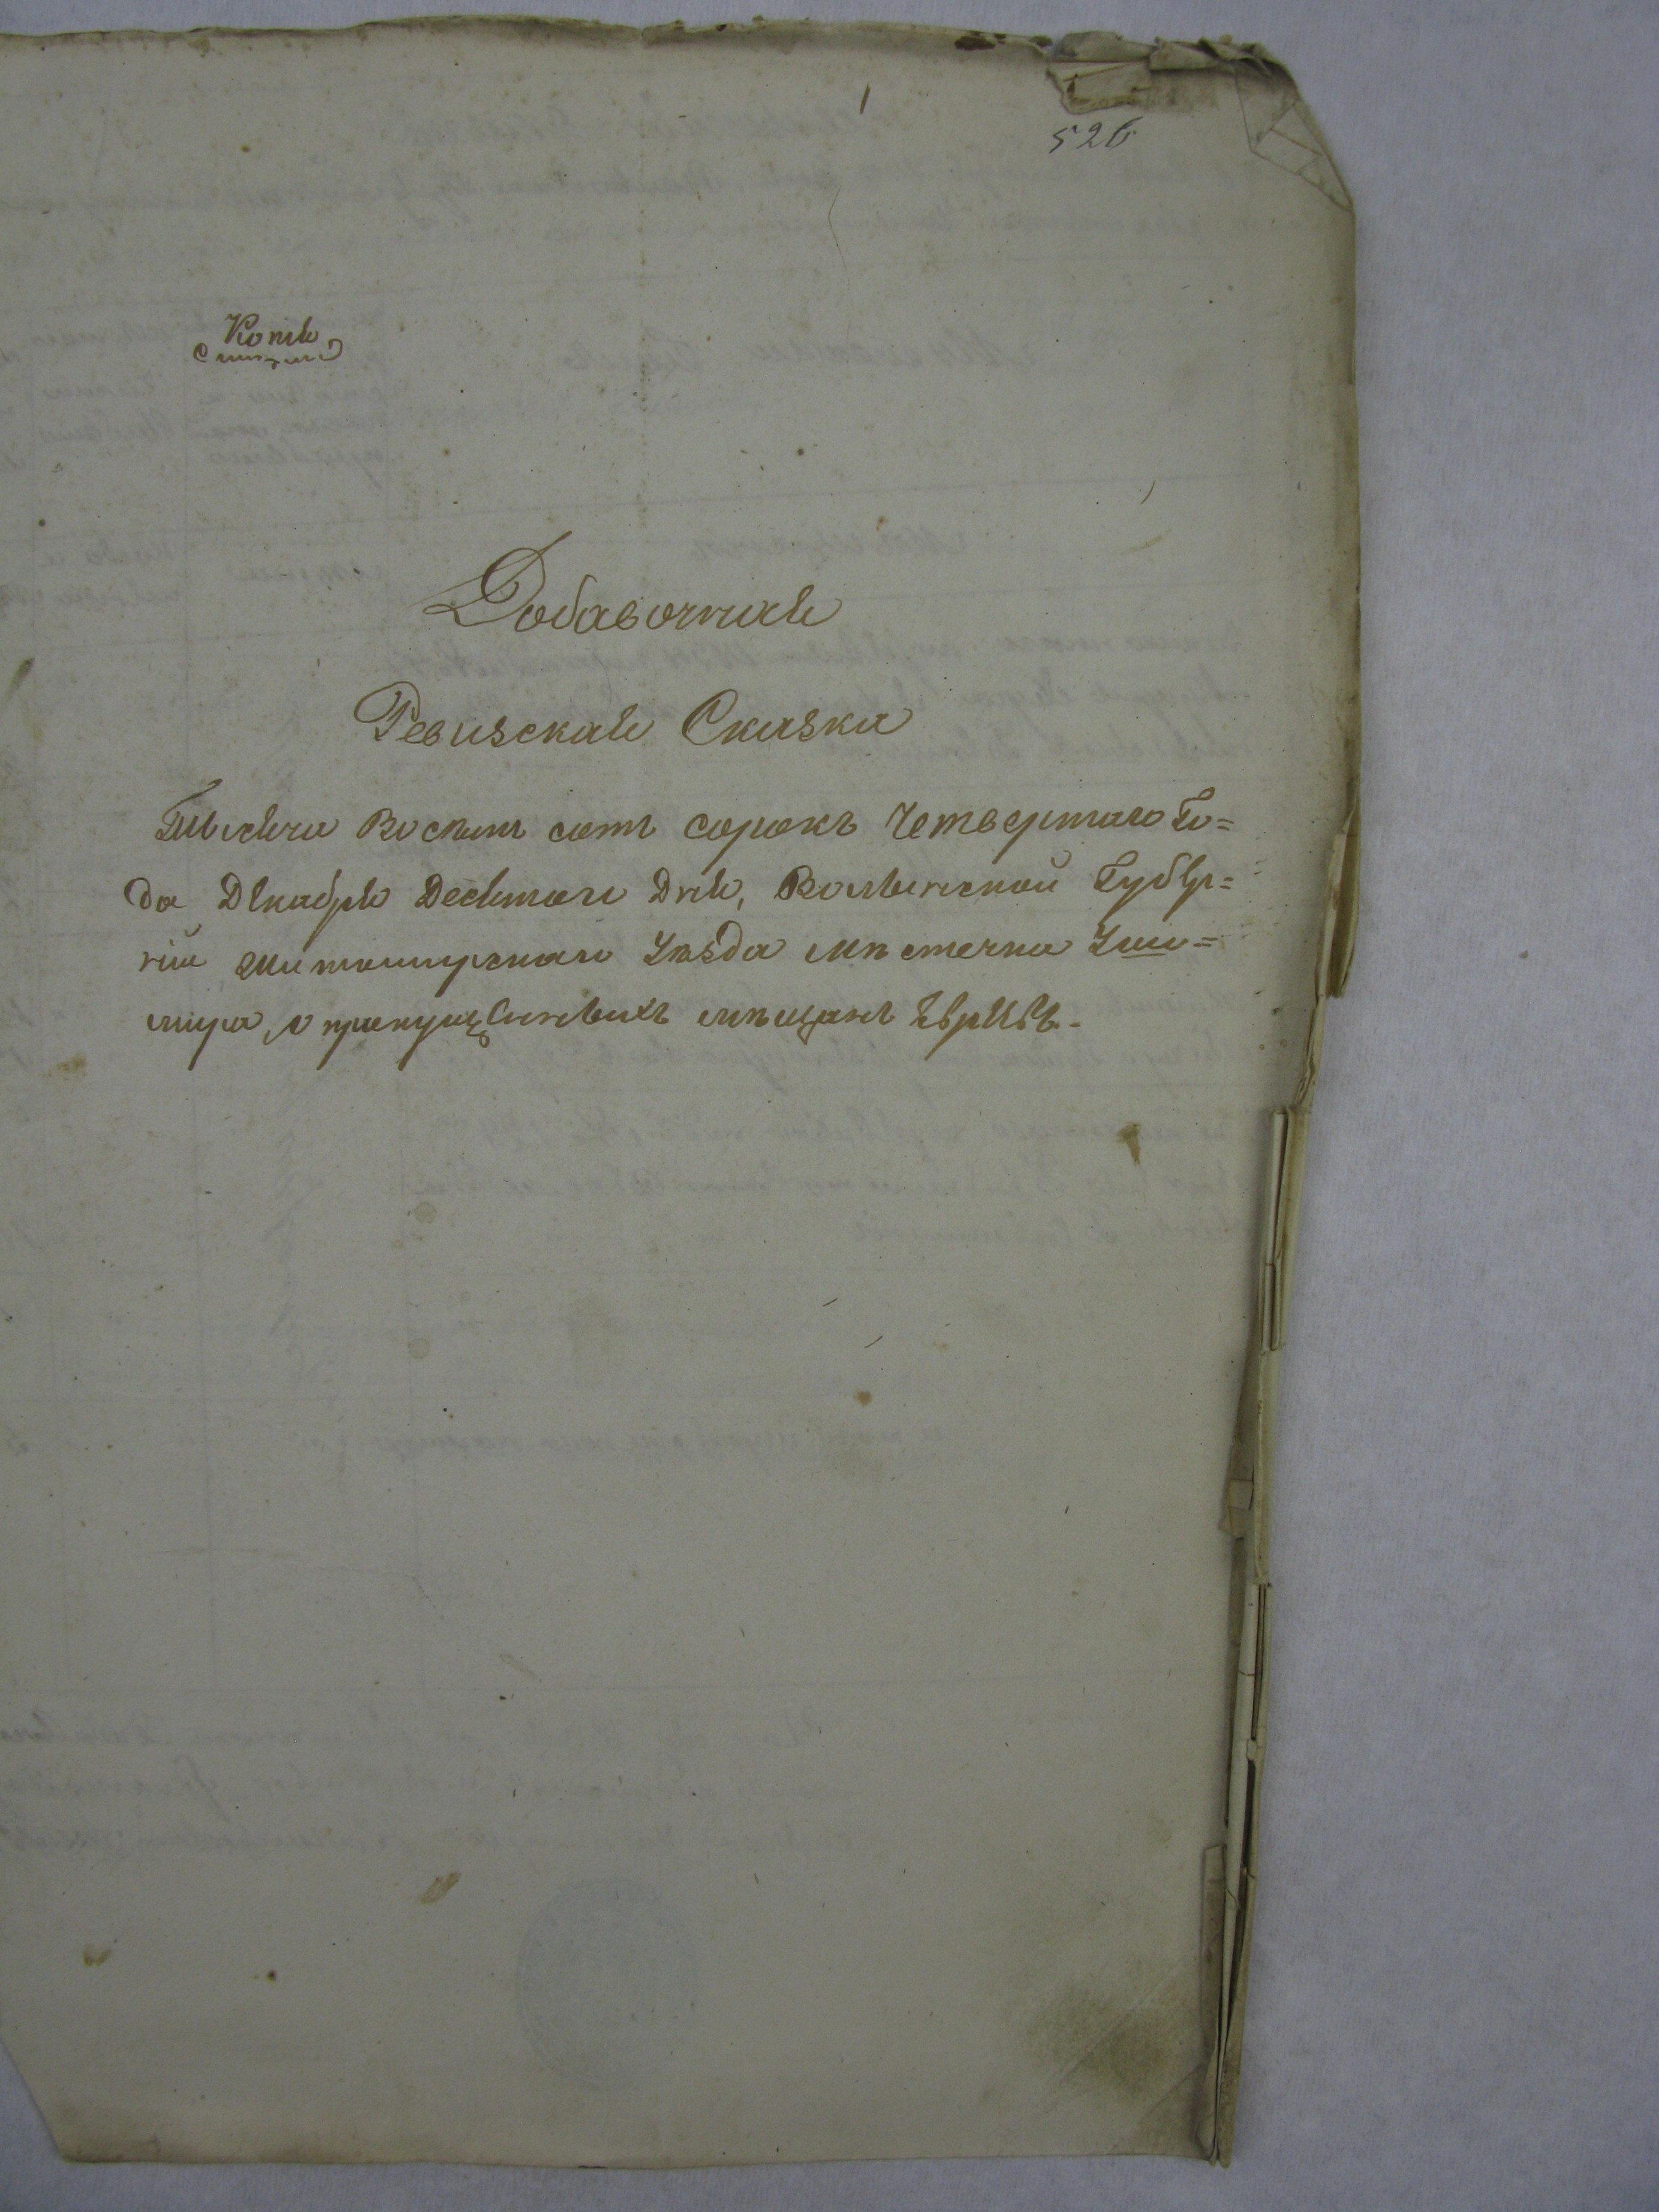 526
Копія
Добавочная
Ревизская Сказка
Тысяча Восемь сотъ сорокъ Четвертаго Го=
да Декабря Десятаго Дня, Волынской Губер=
ніи Житомирскаго Уѣзда мѣстечка Уши=
мира, о мѣщанъ Евреѣвъ.